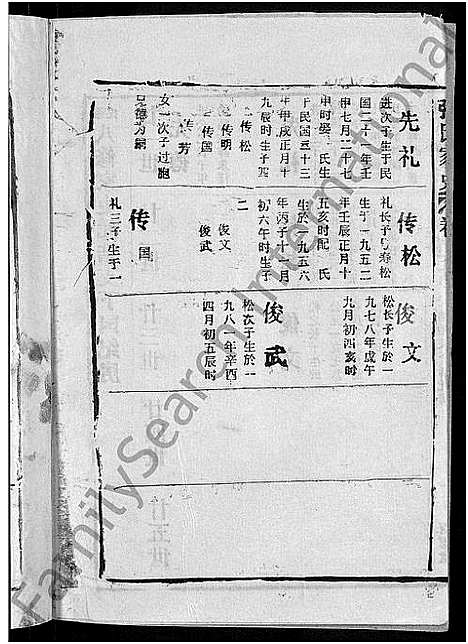 先礼
进次子生于民
国二十一年壬
申七月二十七
申时娶 氏生
于民国三十三
年甲戌正月十
九辰时生子四
传松
传明
传国
传芳
女一次子过胞
兄德为嗣
传松
礼长子 寿松
生于一九五二
年壬辰正月十
五亥时配 氏
生於一九五六
年丙子十一月
初六午时生子
二
俊文
俊武
传国
礼三子生于一
俊文
松长子生於一
九七八年戊午
九月初四亥时
俊武
松次子生於一
九八一年辛酉
四月初五辰时
廿五世
FamilySearch International